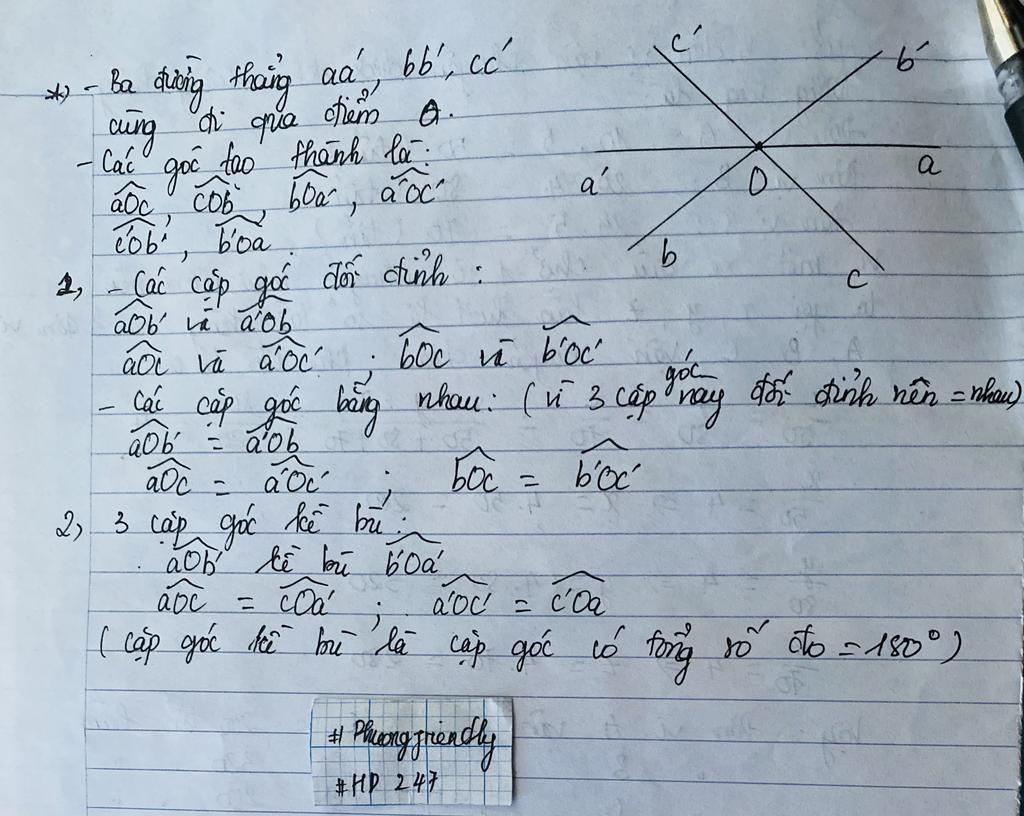 *) - Ba đường thẳng aa', bb', cc'
cùng đi qua điểm O.
- Các góc tạo thành là:
aOc, cOb, bOa', a'Oc'
c'Ob', b'Oa
1, - Các cặp góc đối đỉnh:
aOb' và a'Ob
aOc và a'Oc' ; bOc và b'Oc'
- Các cặp góc bằng nhau: (vì 3 cặp góc này đối đỉnh nên = nhau)
aOb' = a'Ob
aOc = a'Oc' ; bOc = b'Oc'
2, 3 cặp góc kề bù:
. aOb' kề bù b'Oa'
aOc = cOa' ; a'Oc' = c'Oa
(cặp góc kề bù là cặp góc có tổng số đo = 180°)
c'
b'
a'
O
a
b
c
# Phuongfriendly
# HD 247